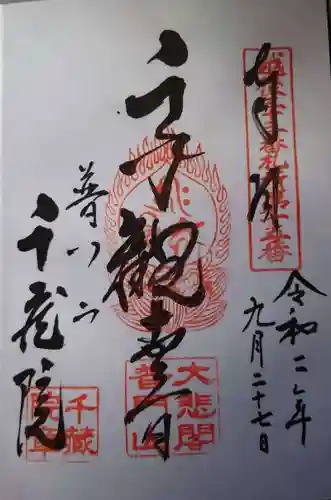 奉拝
令和二年
九月二十七日
千手觀世音
大悲閣
普門山
普門山
千蔵院
千蔵
院章